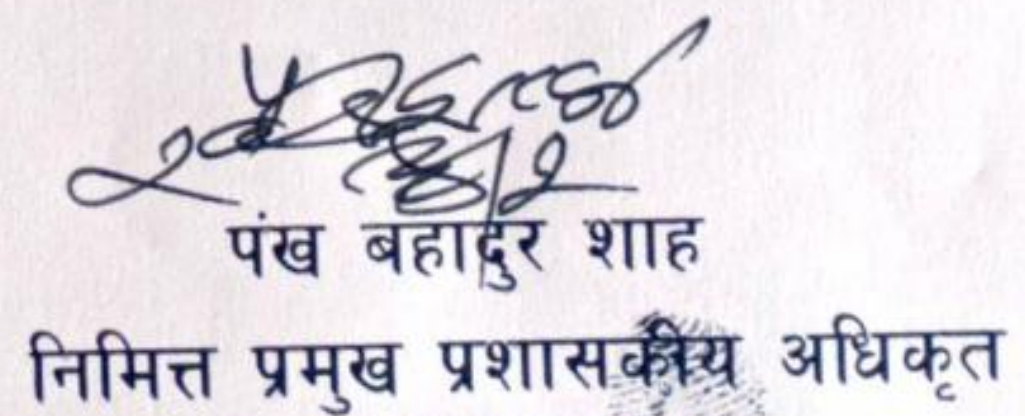 पंख बहादुर शाह
निमित्त प्रमुख प्रशासकीय अधिकृत